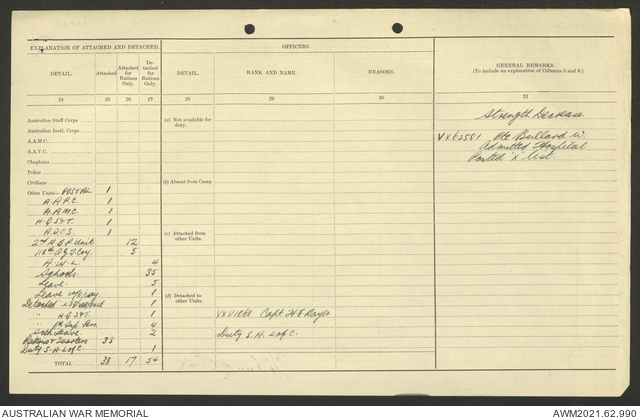 EXPLANATION OF ATTACHED AND DETACHED.
OFFICERS.
GENERAL REMARKS.
(To include an explanation of Columns 5 and 6.)
DETAIL. Attached Attached for Rations Only. Detached for Rations Only.
DETAIL. RANK AND NAME. REASONS.
24 25 26 27 28 29 30 31
Australian Staff Corps
Australian Instl. Corps
A.A.M.C.
A.A.V.C.
Chaplains
Police
Civilians
Other Units— POSTAL 1
A.A.P.C. 1
A.A.M.C. 1
H.Q. S&T. 1
A.D.C.S. 1
2nd A.B.P. Unit 12
Coy 5
A.W.L. 4
Schools 35
Leave 5
Leave w/o pay 1
Detached 1
" H.Q. S&T 1
" 4
Sick Leave 2
33
Duty S.A. L of C. 1
TOTAL 38 17 54
(a) Not available for duty.
(b) Absent from Camp
(c) Attached from other Units.
(d) Detached to other Units.
Capt H E
Duty S.A. L of C.
Strength Decrease.
VX62581 Pte Bullard W.
Admitted Hospital
Posted "X" List.
AUSTRALIAN WAR MEMORIAL
AWM2021.62.990